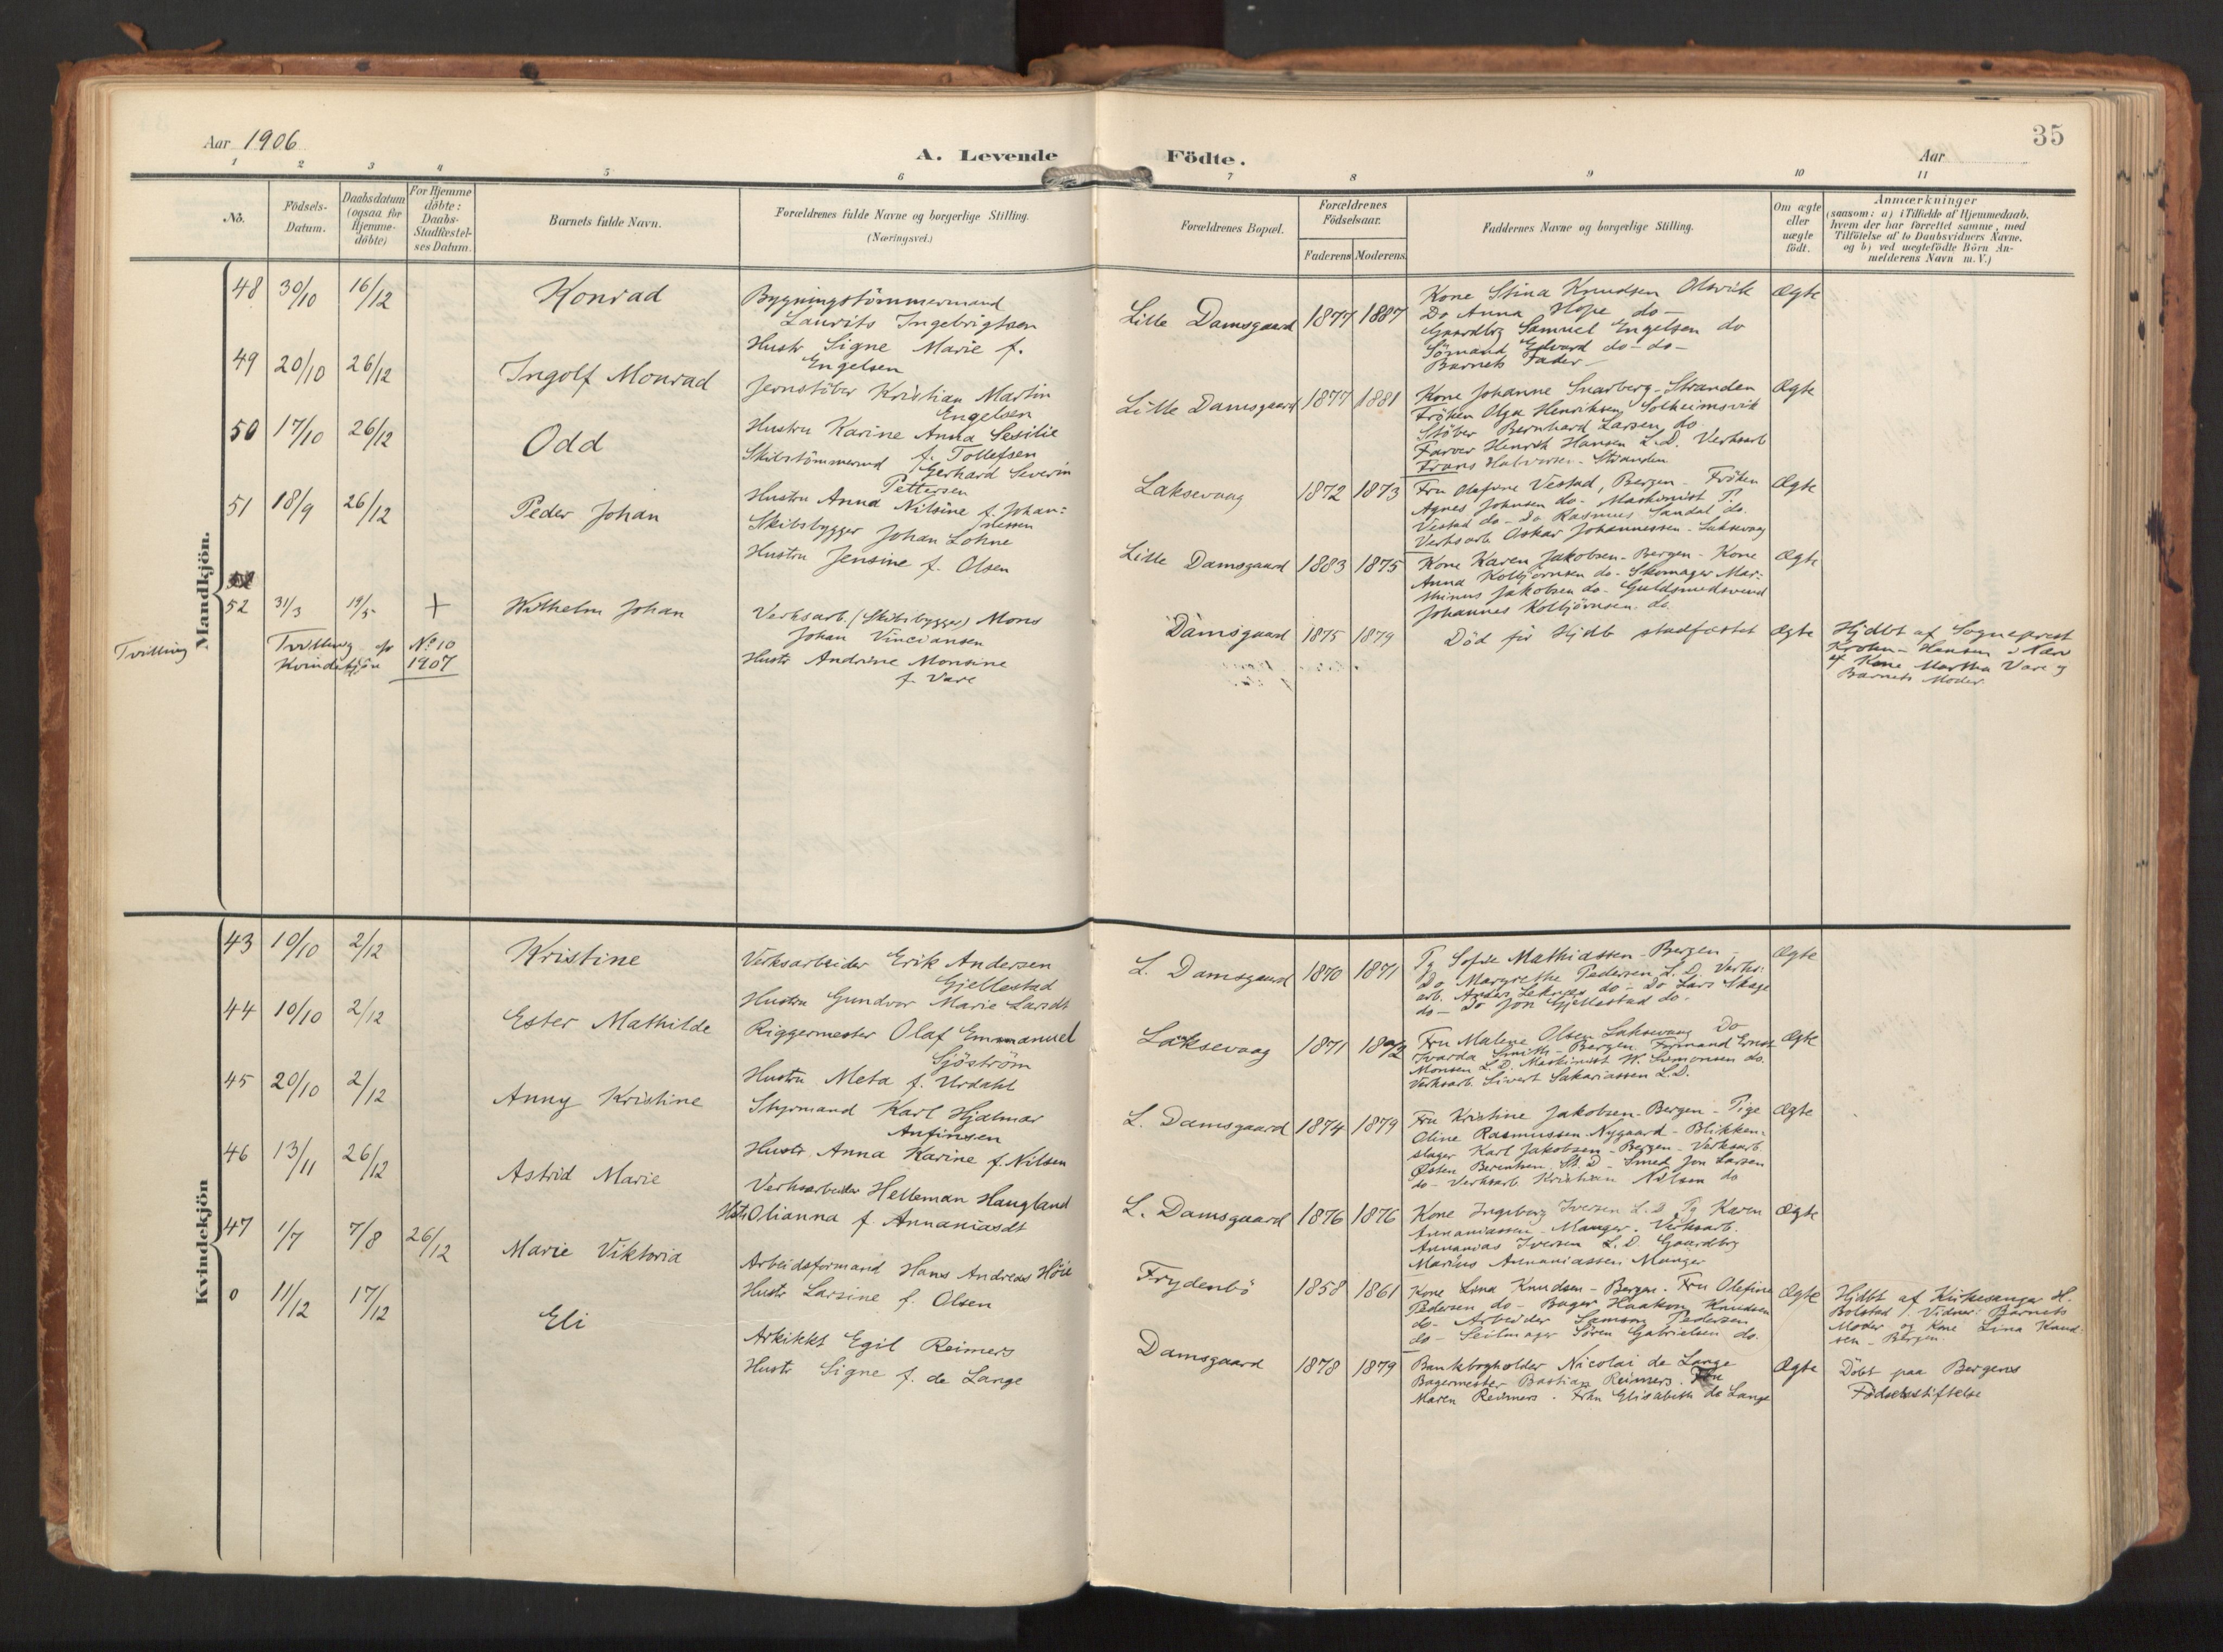 35
Aar 1906
A. Levende Födte.
Aar
1 2 3 4 5 6 7 8 9 10 11
No.
Födsels-
Datum.
Daabsdatum
(ogsaa for
Hjemme-
döbte)
For Hjemme
döbte:
Daabs-
Stadfæstel-
ses Datum.
Barnets fulde Navn.
Forældrenes fulde Navne og borgerlige Stilling.
(Næringsvei.)
Forældrenes Bopæl.
Forældrenes
Födselsaar.
Faderens Moderens
Faddernes Navne og borgerlige Stilling.
Om ægte
eller
uægte
födt.
Anmærkninger
(saasom: a) i Tilfælde af Hjemmedaab,
hvem der har forrettet samme, med
Tilföielse af to Daabsvidners Navne,
og b) ved uægtefödte Börn An-
melderens Navn m. V.)
Mandkjön.
48 30/10 16/12 Konrad
Bygningstömmermand
Laurits Ingebrigtsen
Hustr Signe Marie f.
Engelsen
Lille Damsgaard 1877 1887
Kone Stina Knudsen Olsvik
Do Anna Hope do-
Gaardbrg Samuel Engelsen do
Sömand Edvard do-do-
Barnets Fader-
Ægte
49 20/10 26/12 Ingolf Monrad
Jernstöber Kristian Martin
Engelsen
Hustru Karine Anna Sesilie
f. Tollefsen
Lille Damsgaard 1877 1881
Kone Johanne Snarberg-Stranden
Fröken Olga Henriksen, Solheimsvik
Stöber Bernhard Larsen do
Farver Henrik Hansen L.D. Verksarb
Frans Halvorsen-Stranden
Ægte
50 17/10 26/12 Odd
Skibstömmermd Gerhard Severin
Pettersen
Hustru Anna Nilsine f. Johan=
nessen
Laksevaag 1872 1873
Fru Olefine Vestad, Bergen- Fröken
Agnes Johnsen do- Maskinist P.
Vestad do- Do Rasmus Sandal do.
Verksarb Oskar Johannessen-Laksevaag
Ægte
51 18/9 26/12 Peder Johan
Skibsbygger Johan Lohne
Hustru Jensine f. Olsen
Lille Damsgaard 1883 1875
Kone Karen Jakobsen-Bergen-Kone
Anna Kolbjörnsen do-Skomager Mar=
thinus Jakobsen do-Guldsmedsvend
Johannes Kolbjörnsen. do.
Ægte
52 31/3 19/5 + Wilhelm Johan
Verksarb. (Skibsbygger) Mons
Johan Vinciansen
Hustr Andrine Monsine
f. Vare
Damsgaard 1875 1879
Död för Hjdb stadfæstet
Ægte
Hjdbt af Sogneprest
Krohn-Hansen i Nærv
af Kone Martha Vare og
Barnets Moder.
Tvilling
Tvilling af No 10
Kvindekjön 1907
Kvindekjön
43 10/10 2/12 Kristine
Verksarbeider Erik Andersen
Gjellestad
Hustru Gundvor Marie Larsdt
L. Damsgaard 1870 1871
Pg Sofie Mathiassen-Bergen-
Do Margrethe Pedersen L.D. Verks=
arb. Anders Leknes do- Do Lars Skage
do- Do Jon Gjellestad do-
Ægte
44 10/10 2/12 Ester Mathilde
Riggermester Olaf Emmanuel
Sjöström
Hustru Meta f. Urdahl
Laksevaag 1871 1872
Fru Malene Olsen Laksevaag Do
Ivarda Smith- Bergen Formand Ernst
Monsen L.D. Maskinist W. Simonsen do.
Verksarb. Sivert Sakariassen L.D.
Ægte
45 20/10 2/12 Anny Kristine
Styrmand Karl Hjalmar
Anfinsen
Hustr Anna Karine f. Nilsen
L. Damsgaard 1874 1879
Fru Kristine Jakobsen-Bergen-Pige
Oline Rasmussen Nygaard-Blikken=
slager Karl Jakobsen-Bergen-Verksarb.
Østen Berentsen St.D-Smed Jon Larsen
do-Verksarb Kristian Nilsen do
Ægte
46 13/11 26/12 Astrid Marie
Verksarbeider Helleman Haugland
Hstr Olianna f. Annaniasdt
L. Damsgaard 1876 1876
Kone Ingeborg Iversen L.D. Pg Karen
Annaniassen-Manger. Verksarb.
Annanias Iversen L.D. Gaardbrg
Marius Annaniassen Manger
Ægte
47 1/7 7/8 26/12 Marie Viktoria
Arbeidsformand Hans Andreas Höie
Hustr Larsine f. Olsen
Frydenbö 1858 1861
Kone Lina Knudsen-Bergen. Fru Olefine
Pedersen do-Bager Haakon Knudsen
do-Arbeider Samson Pedersen
do-Seilmager Sören Gabrielsen do.
Ægte
Hjdbt af Kirkesanger H.
Bolstad. Vidner: Barnets
Moder og Kone Lina Knud=
sen-Bergen.
0 11/12 17/12 Eli
Arkitekt Egil Reimers
Hustr Signe f. de Lange
Damsgaard 1878 1879
Bankbogholder Nicolai de Lange
Bagermester Bastian Reimers. Fru
Maren Reimers. Frkn Elisabeth de Lange
Ægte
Döbt paa Bergens
Födselsstiftelse